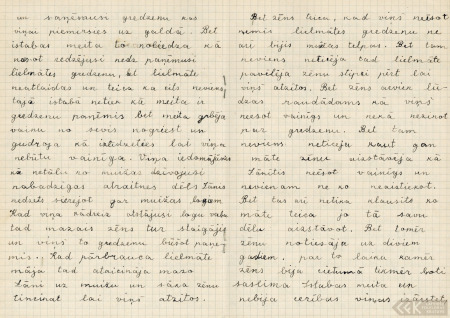 un saņēmusi gredzenu kas
viņai piemirsies uz galdā. Bet
istabas meita noliedza ka
nesot redzējusi nedz paņēmusi
lielmātes gredzenu, bet lielmāte
neatlaidas un teica ka cits neviens
tajā istabā neticis kā meita ir
gredzenu paņēmis bet meita gribēja
vainu no sevis nogriest un
gudroja kā izdarīties lai viņa
nebūtu vainīga. Viņa iedomājusies
ka netālu no muižas dzīvojusi
nabadzīgas atraitnes dēls Jānis
nedzis vierejot gar muižas logam
Kad viņa nadevis atstājusi logu vaļā
tad mazais zēns tur staigājis
un viņš to gredzenu būšot paņē-
mis. Kad pārbrauca lielmāte
mājā tad ataicināja mazo
Jāni uz muižu un sāka zēnu
tincināt lai viņš atzītos.
Bet zēns teica, ka viņš neesot
ņēmis lielmātes gredzenu ne
arī bijis muižas telpās. Bet tam
neviens neticēja tad lielmāte
pavēlēja zēnu stipri pērt lai
viņš atzītos. Bet zēns aizvien lū-
dzas raudādams ka viņš
neesot vainīgs un nekā nezinot
par gredzenu. Bet tam
neviens neticēja kaut gan
māte zēnu aizstāvēja ka
Jānītis neesot vainīgs un
nevienam ne ko neaiztiekot.
Bet tas arī netika klausīts ko
māte teica jo tā savu
dēlu aizstāvot. Bet tomēr
zēnu notiesāja uz diviem
gadiem, par to laiku kamēr
zēns bija cietumā tikmēr ļoti
saslima Istabas meita un
nebija cerības viņas